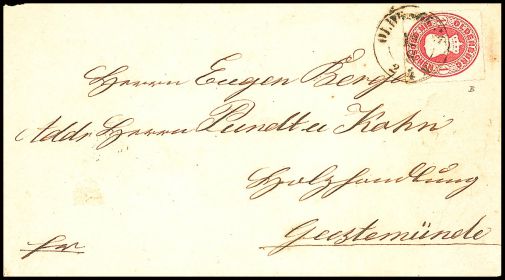 OLDE
Herrn Eugen Berger
Addr. Herrn Pundt u Kohn
Holzhandlung
Geestemünde
fr
B